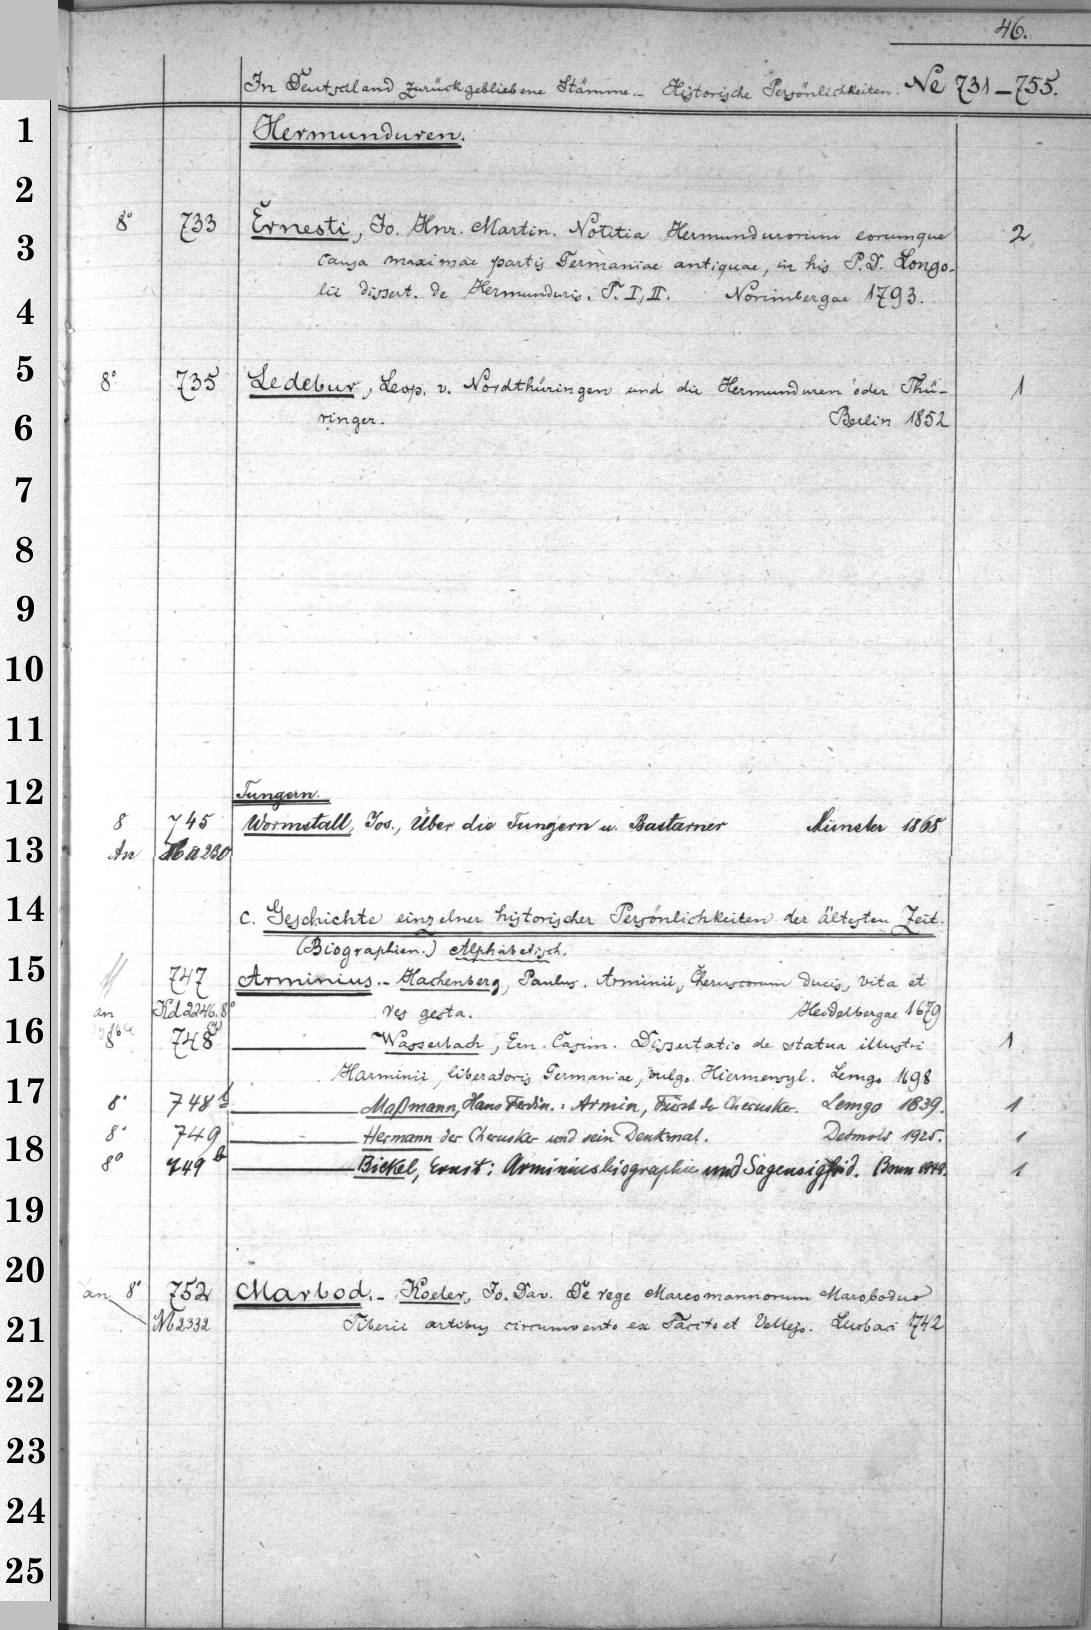 46.
In Deutschland zurückgebliebene Stämme.- Historische Persönlichkeiten. Ne 731-755.
1
Hermunduren.
2
8° 733 Ernesti, Jo. Hnr. Martin. Notitia Hermundurorum eorumque 2
3
causa maximae partis Germaniae antiquae, in his P. D. Longo-
lii dissert. de Hermunduris. T. I, II. Norimbergae 1793.
4
5
8° 735 Ledebur, Leop. v. Nordthüringen und die Hermunduren oder Thü- 1
6
ringer. Berlin 1852
7
8
9
10
11
12
Tungern.
8 745 Wormstall, Jos., Über die Tungern u. Bastarner Münster 1868
13
An 230
14
c. Geschichte einzelner historischer Persönlichkeiten der ältesten Zeit.
(Biographien.) Alphabetisch.
15
747 Arminius.- Hachenberg, Paulus. Arminii, Cheruscorum ducis, vita et
an Kd 2246.8° res gesta. Heidelbergae 1679
16
8° 748 Wasserbach, Ern. Casim. Dissertatio de statua illustri 1
Harminii, liberatoris Germaniae, vulgo Hiermensyl. Lemgo 1698
17
8° 748 b Maßmann, Hans Ferdin.: Armin, Fürst der Cherusker. Lemgo 1839. 1
8° 749 Hermann der Cherusker und sein Denkmal. Detmold 1925. 1
18
8° 749 b Bickel, Ernst: Arminiusbiographie und Sagensigfrid. Bonn 1
19
20
an 8° 752 Marbod.- Koeler, Jo. Dav. De rege Marcomannorum Maroboduo
21
2332 Tiberii artibus circumvento ex Tacito et Vellejo. 1742
22
23
24
25